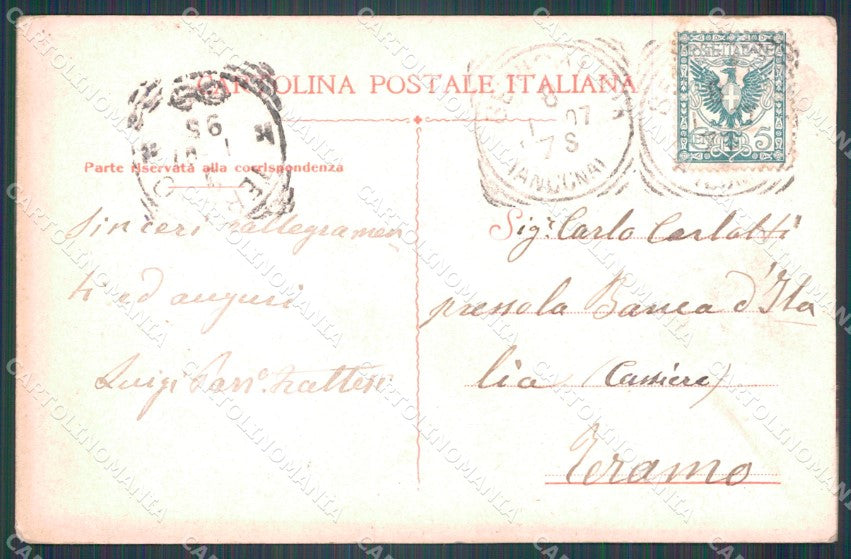 CARTOLINA POSTALE ITALIANA
Parte riservata alla corrispondenza
Sinceri rallegramen
ti ed auguri
Luigi
(ANCONA)
07
7 S
POSTE ITALIANE
5
Sigr. Carlo Carlotti
presso la Banca d'Ita
lia (Cassiere)
Teramo
CARTOLINOMANIA